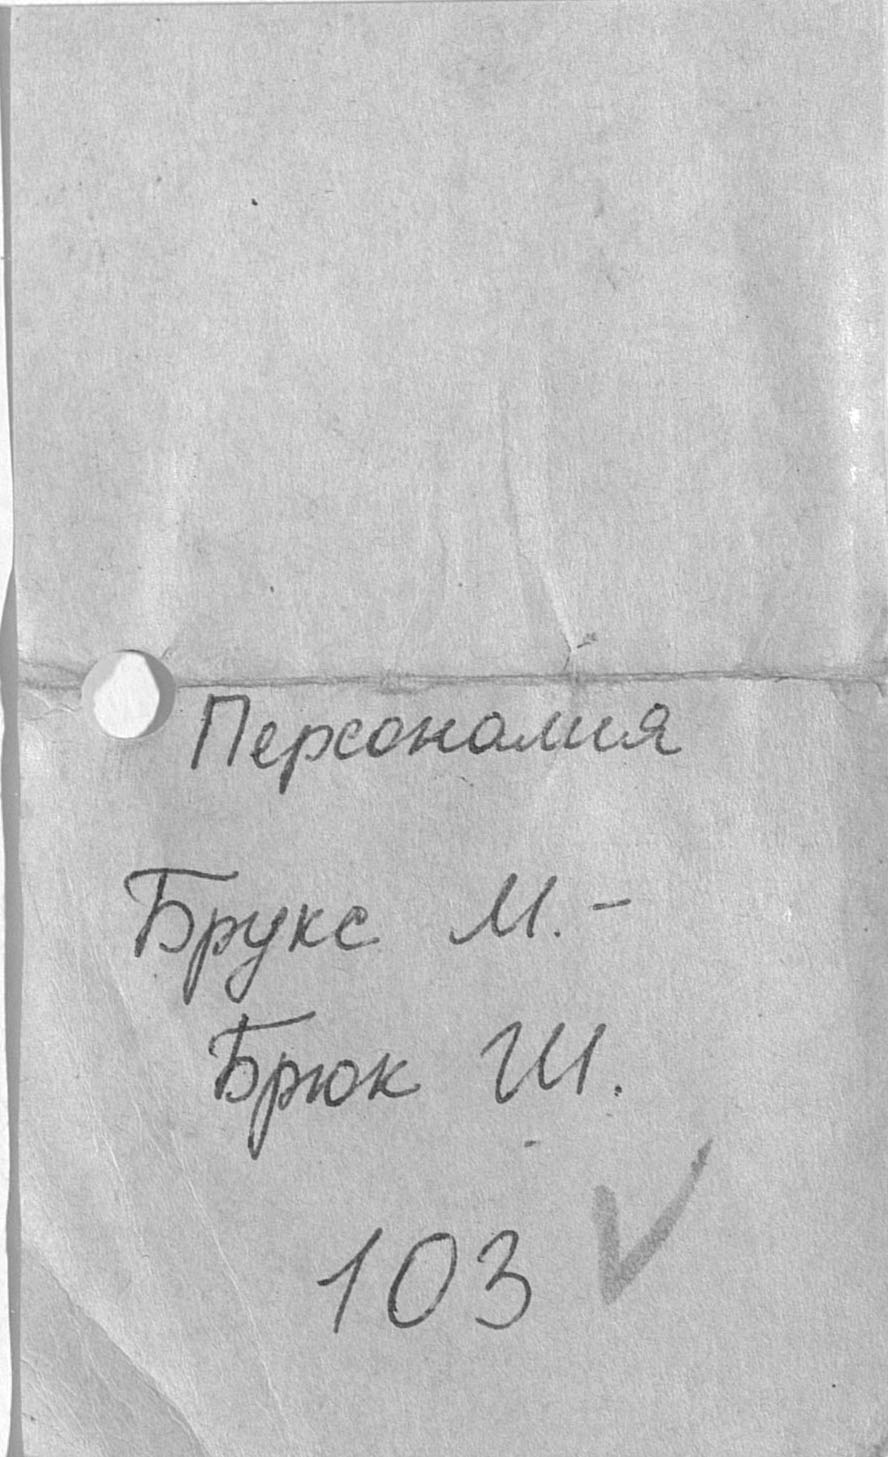 Персоналия
Брукс М. -
Брюк Ш.
103